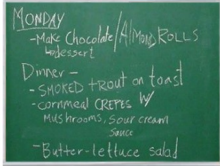 MONDAY
-Make Chocolate/Almond ROLLS
dessert
Dinner-
-SMOKED trout on toast
-cornmeal CREPES W/
Mushrooms, Sour cream
sauce
-Butter-lettuce salad